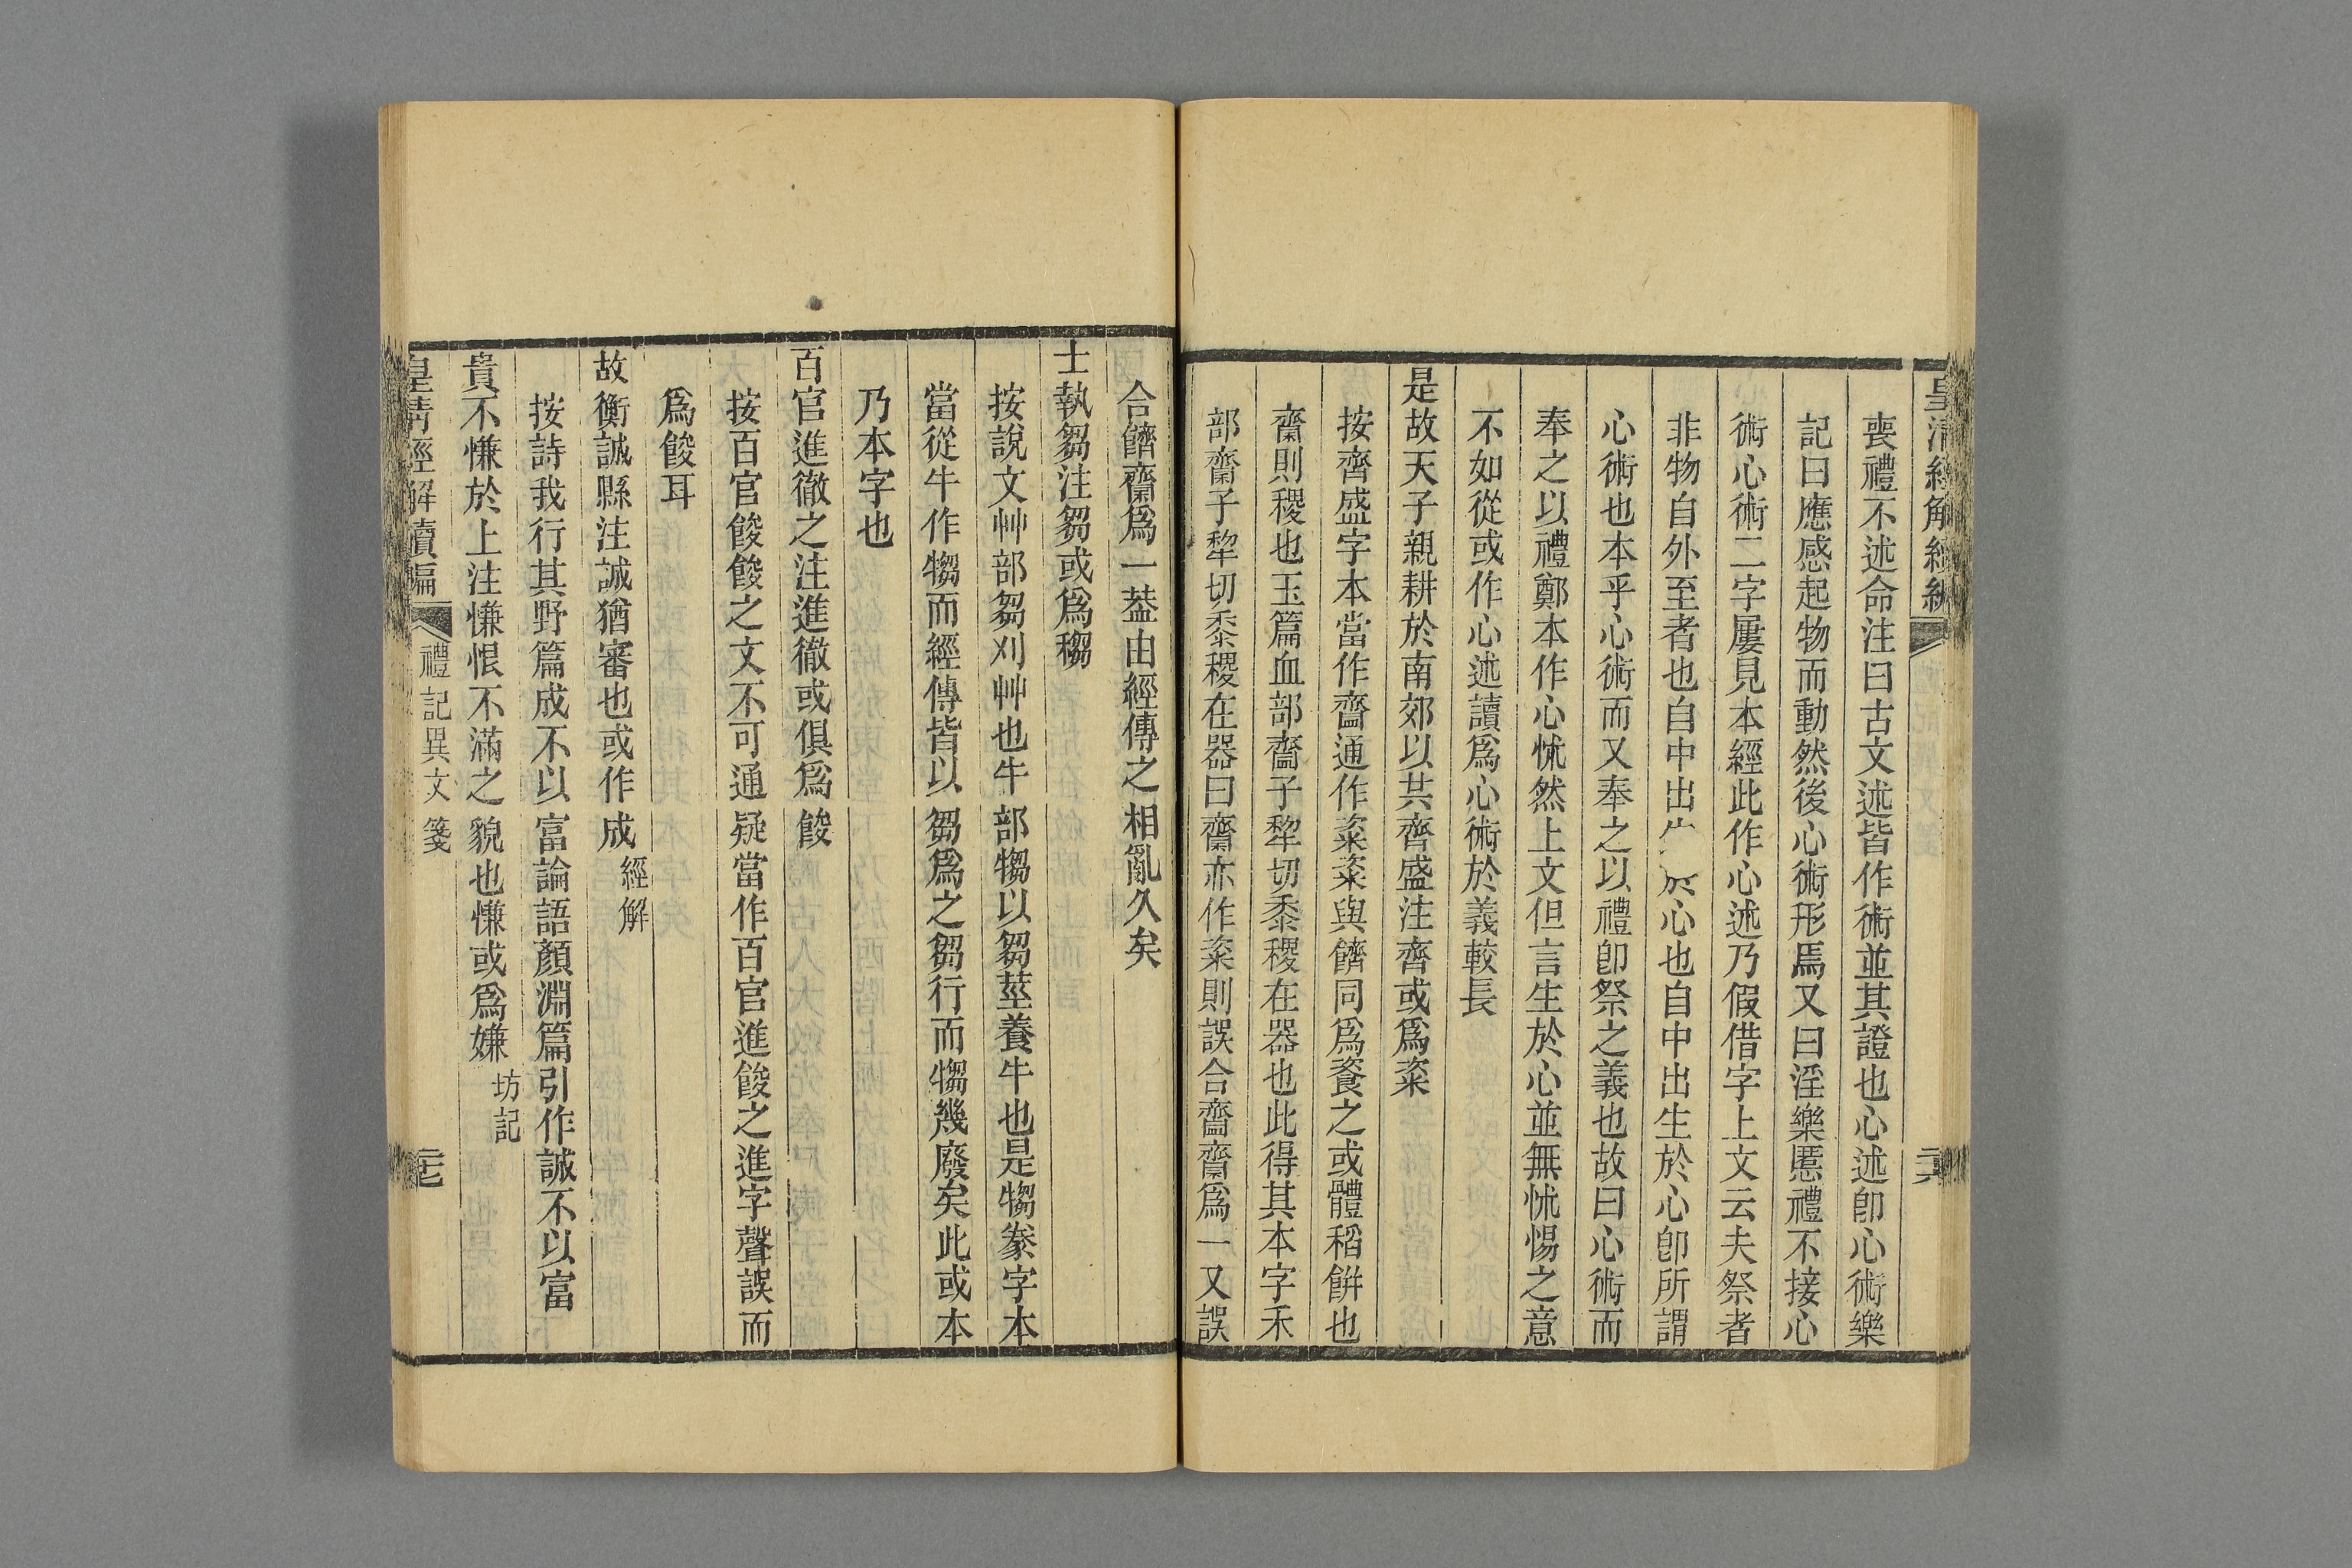 喪禮不述命注曰古文述皆作術並其證也心述卽心術樂
記曰應感起物而動然後心術形焉又曰淫樂慝禮不接心
術心術二字屢見本經此作心述乃假借字上文云夫祭者
非物自外至者也自中出於心也自中出生於心卽所謂
心術也本乎心術而又奉之以禮卽祭之義也故曰心術而
奉之以禮鄭本作心怵然上文但言生於心並無怵惕之意
不如從或作心述讀爲心術於義較長
是故天子親耕於南郊以共齊盛注齊或爲粢
按齊盛字本當作齍通作粢粢與餈同爲餈之或體稻餅也
齋則稷也玉篇血部齍子犂切黍稷在器也此得其本字禾
部齋子犂切黍稷在器曰齋亦作粢則誤合齍齋爲一又誤
合餈齋爲一葢由經傳之相亂久矣
士執芻注芻或爲穊
按說文艸部芻刈艸也牛部犓以芻莖養牛也是犓豢字本
當從牛作犓而經傳皆以芻爲之芻行而犓幾廢矣此或本
乃本字也
百官進徹之注進徹或俱爲餕
按百官餕餕之文不可通疑當作百官進餕之進字聲誤而
爲餕耳
故衡誠縣注誠猶審也或作成 經解
按詩我行其野篇成不以富論語顏淵篇引作誠不以富
貴不慊於上注慊恨不滿之貌也慊或爲嫌 坊記
皇清經解續編 禮記異文箋 二七